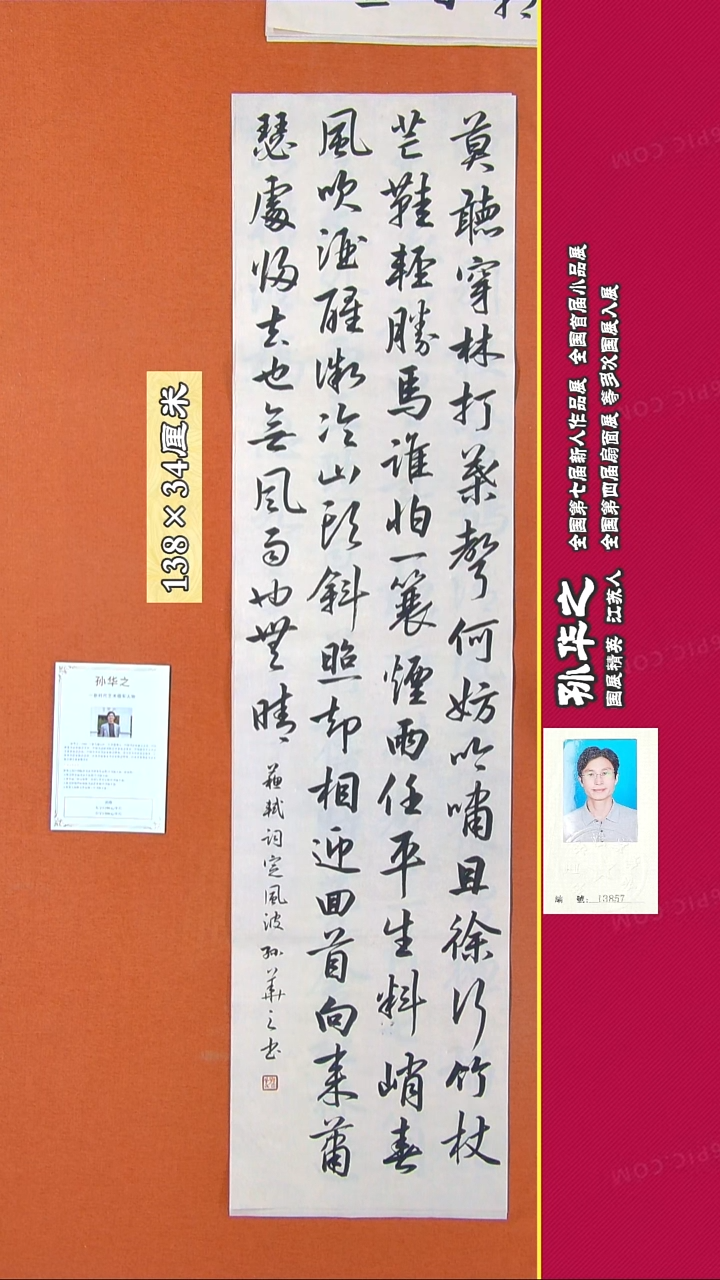 莫聽穿林打葉聲何妨吟嘯且徐行竹杖
芒鞋輕勝馬誰怕一蓑煙雨任平生料峭春
風吹酒醒微冷山頭斜照却相迎回首向來蕭
瑟處歸去也無風雨也無晴
蘇軾詞定風波孫華之書
138×34厘米
孙华之
孙华之
國展精英 江苏人
全國第七届新人作品展 全國首届小品展
全國第四届扇面展 等多次國展入展
編號：13857